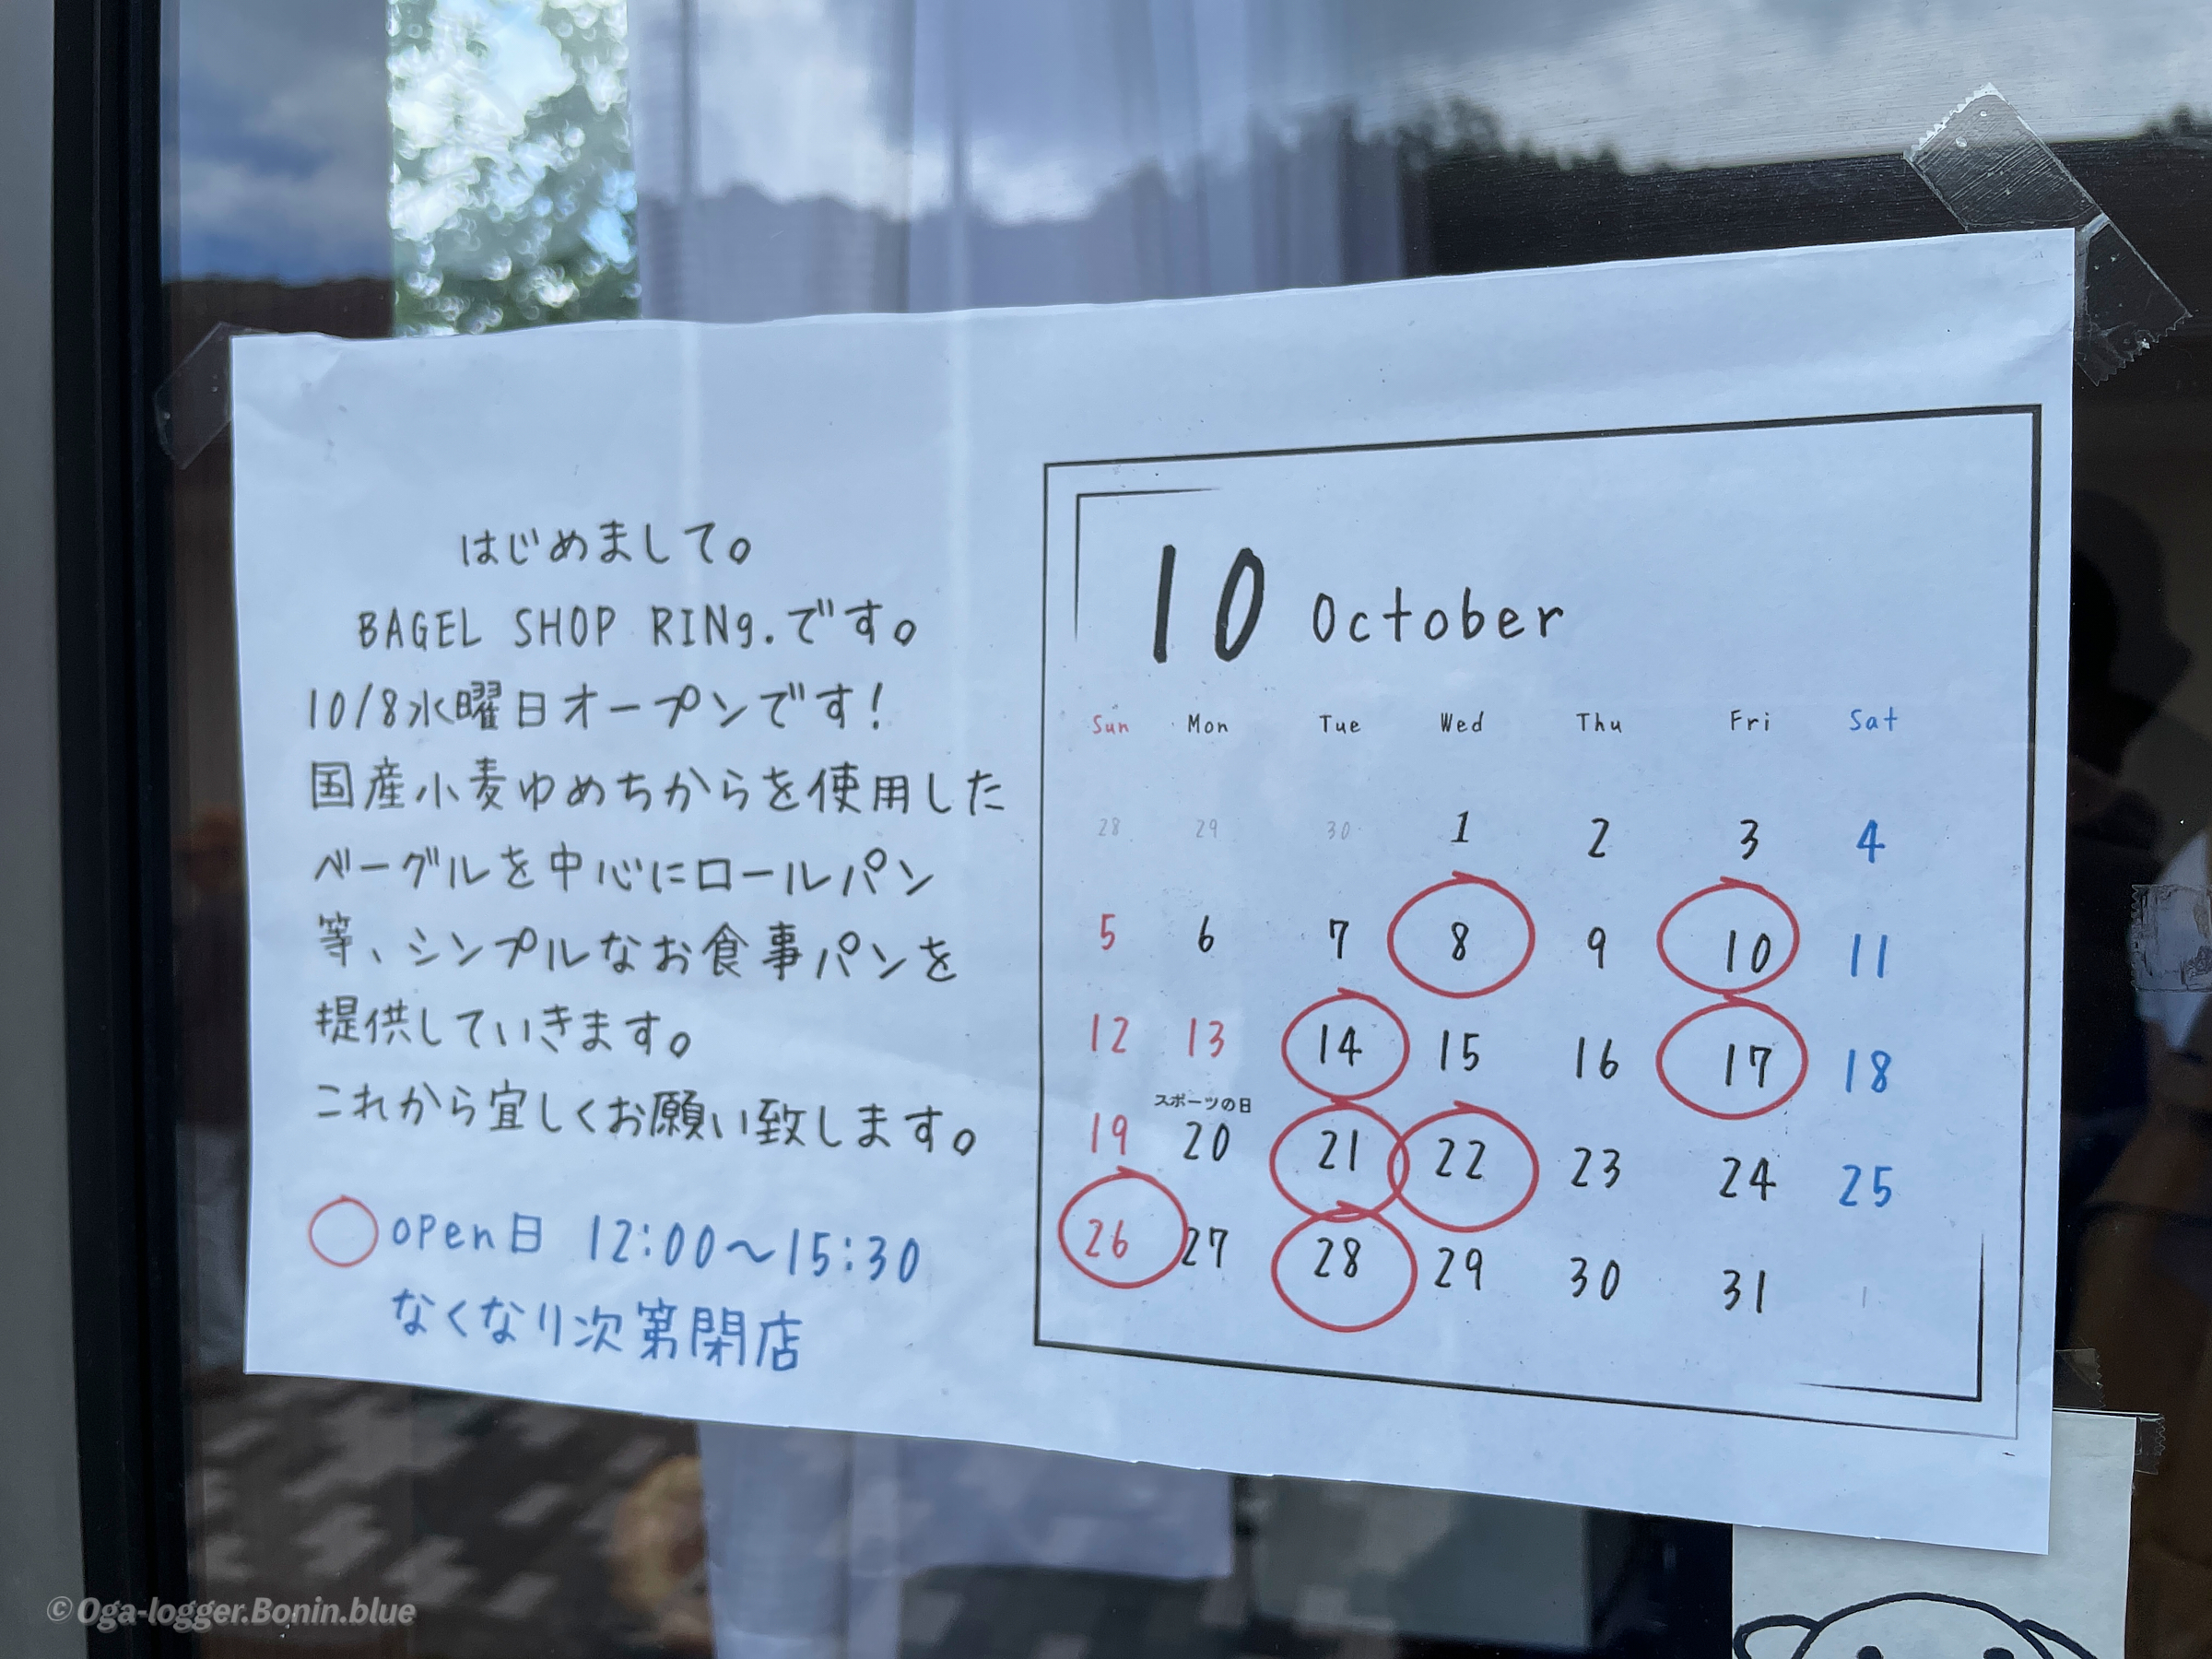 はじめまして。
BAGEL SHOP RINg.です。
10/8水曜日オープンです!
国産小麦ゆめちからを使用した
ベーグルを中心にロールパン
等、シンプルなお食事パンを
提供していきます。
これから宜しくお願い致します。
open日 12:00〜15:30
なくなり次第閉店
10 October
Sun Mon Tue Wed Thu Fri Sat
28 29 30 1 2 3 4
5 6 7 8 9 10 11
12 13 14 15 16 17 18
スポーツの日
19 20 21 22 23 24 25
26 27 28 29 30 31 1
©Oga-logger.Bonin.blue